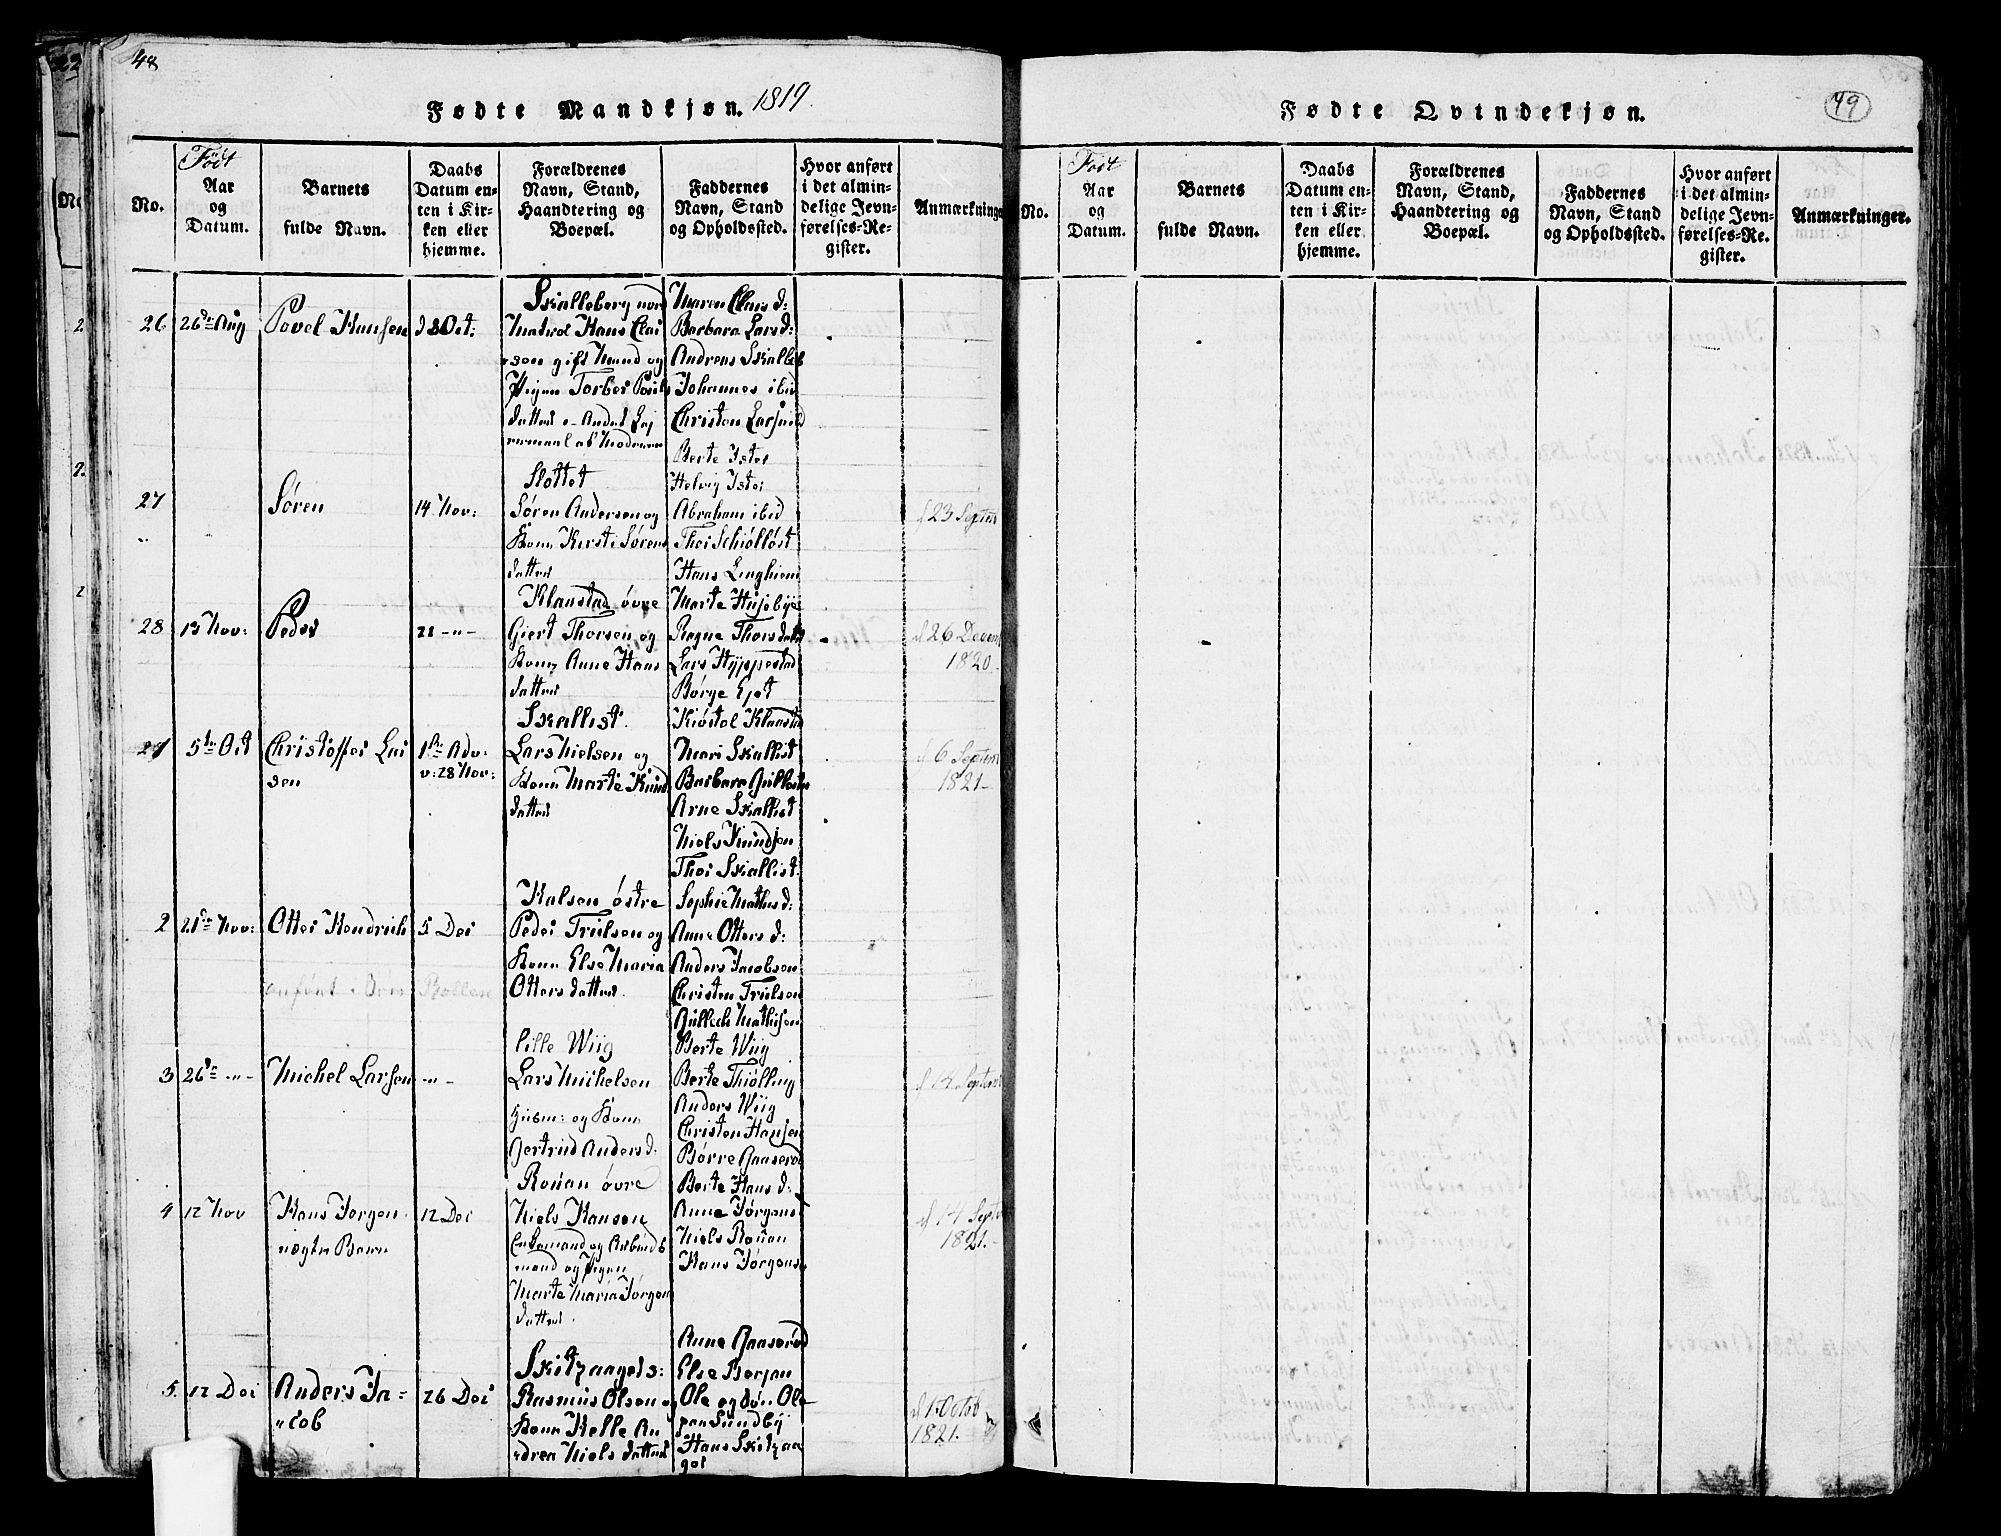 48
Fødte Mandkjøn. 1819.
No.
Født
Aar
og
Datum.
Barnets
fulde Navn.
Daabs
Datum en-
ten i Kir-
ken eller
hjemme.
Forældrenes
Navn, Stand,
Haandtering og
Boepæl.
Faddernes
Navn, Stand
og Opholdssted.
Hvor anført
i det almin-
delige Jevn-
førelses-Re-
gister.
Anmærkninge
26
26de Aug
Povel Hansen
Oct:
Skalleberg nord
Matrol Hans Clai
sen gift Mand og
Pigen Torber Pouls
datter
Maren Claus d:
Barbara Lars d:
Andreas Skalleb
Johannes ibid
Christen Lars ibid
27
Søren
14 Nov:
Slottet
Søren Andersen og
Kone Kirsti Sørens
datter
Berte Ister
Helvig Ister
Abraham ibid
Thor Schiølløst
Hans Linghiem
d 23 Septem
28
13 Nov:
Peder
21 -"-
Klaastad øvre
Giert Thorsen og
Kone Anne Hans
datter
Marte Husebye
Ragne Thorsdatt
Lars Hyppestad
Børge Ejet
Kiøstol Klaastad
d 26 Decem
1820
5te Oct
Christoffer Lar
sen
1ste Adv:
v: 28 Nov:
Skallist.
Lars Nielsen og
Kone Marte Knud
datter
Mari Skallist
Barbara
Arne Skallist
Niels Knudsen
Thor Skallist.
d 6 Septem
1821
2
21de Nov:
Otter Hendrich
anført
5 Dec
Halsen østre
Peder Trulsen og
Kone Else Maria
Otters datter.
Sophie Mathis d:
Anne Otters d:
Anders Jacobsen
Christen Trulsen
Gullech Mathisen
3
26de -"-
Michel Larsen
-"-
lille Wiig
Lars Michelsen
Husm: og Kone
Gertrud Anders d:
Berte Wiig
Berte Thiølling
Anders Wiig
Christen Hansen
Børre Gaaserød
d 14 Septem
4
12 Nov
Hans Jørgen
uægte Barn
12 Dec
Rouan øvre
Niels Hansen
Enkemand og Arbeids
mand og Pigen
Marte Maria Jørgen
datter
Berte Hans d:
Anne Jørgens
Niels Rouan
Hans Jørgens
d 14 Septe
1821.
5.
12 Dec
Anders Ja=
cob
26 Dec
Skitzaagels:
Rasmus Olsen og
Kone Helle An
drea Niels datter
Anne Gaaserød
Else Berjan
Ole og Søn Ole
paa Sundby
Hans Skitzaa
gel
d 1 Octob
1821.
Fødte Qvindekjøn.
49
No.
Født
Aar
og
Datum.
Barnets
fulde Navn.
Daabs
Datum en-
ten i Kir-
ken eller
hjemme.
Forældrenes
Navn, Stand,
Haandtering og
Boepæl.
Faddernes
Navn, Stand
og Opholdssted.
Hvor anført
i det almin-
delige Jevn-
førelses-Re-
gister.
Anmærkninger.